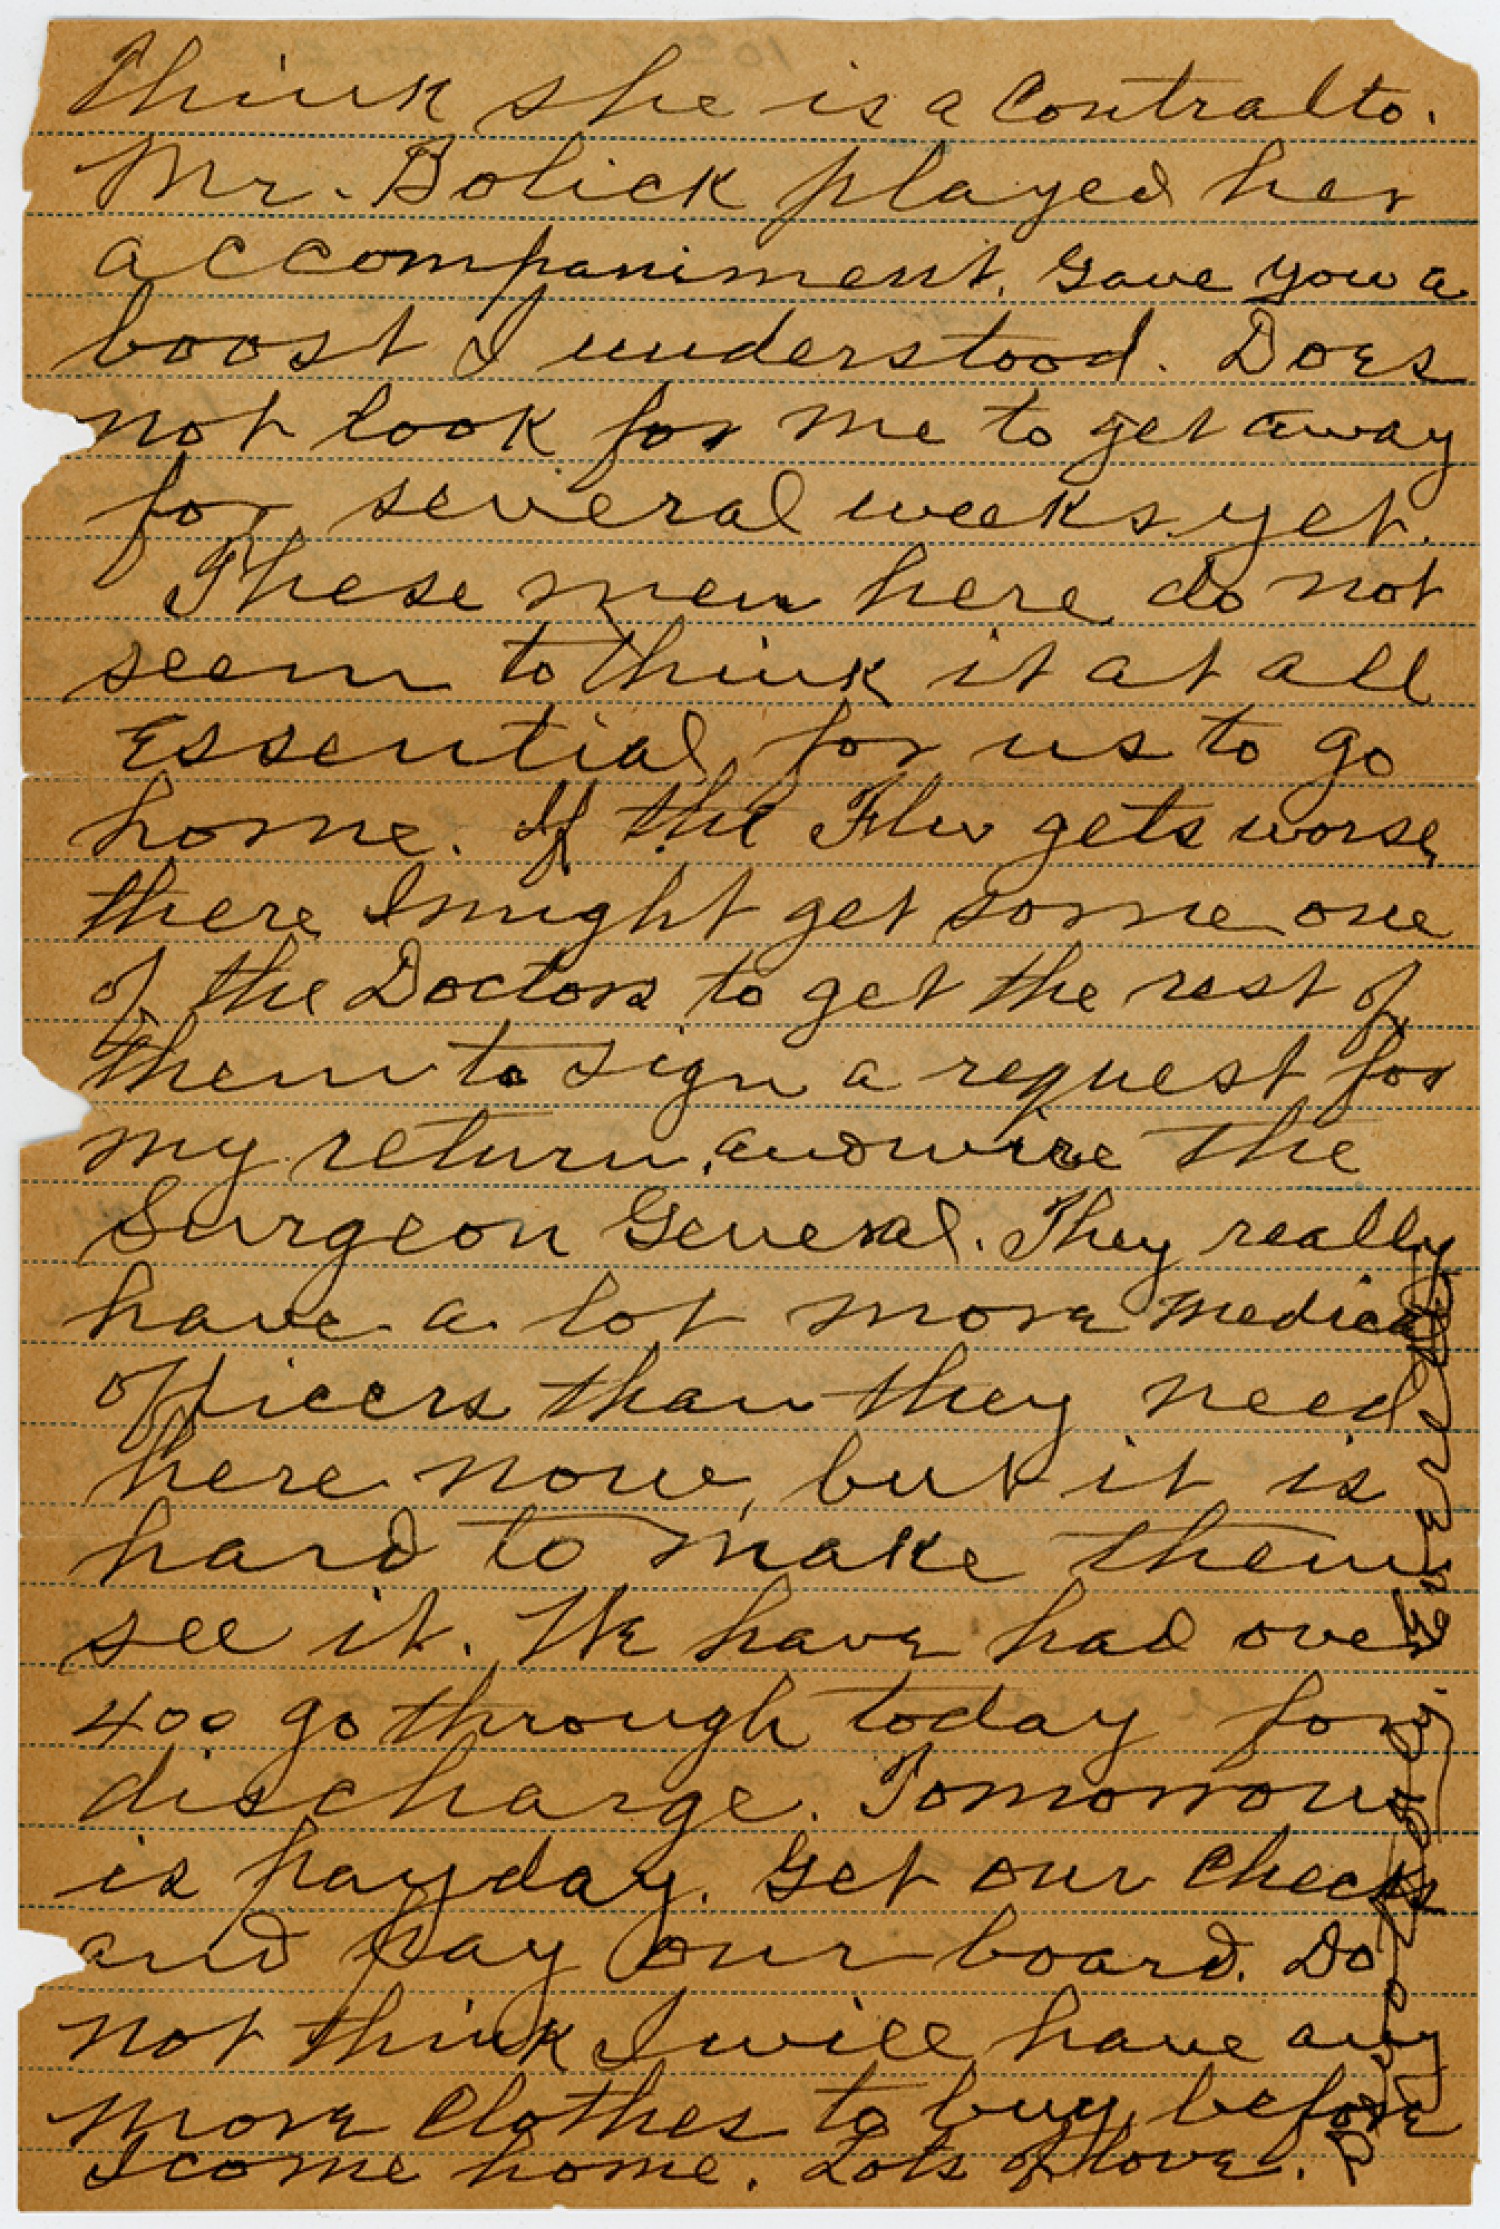 think she is a Contralto.
Mr. Bolick played her
accompaniment. Gave you a
boost I understood. Does
not look for me to get away
for several weeks yet.
These men here do not
seem to think it at all
Essential for us to go
home. If the Flu gets worse
there I might get some one
of the Doctors to get the rest of
them to sign a request for
my return, and wire the
Surgeon General. They really
have a lot more Medical
officers than they need
here now, but it is
hard to make them
see it. We have had over
400 go through today for
discharge. Tomorrow
is payday. Get our Checks
and pay our board. Do
not think I will have any
more Clothes to buy before
I come home. Lots of love.